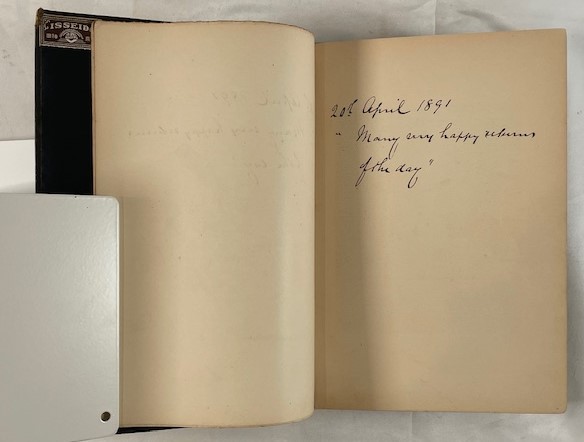 ISSEID
20th April 1891
" Many very happy returns
of the day "